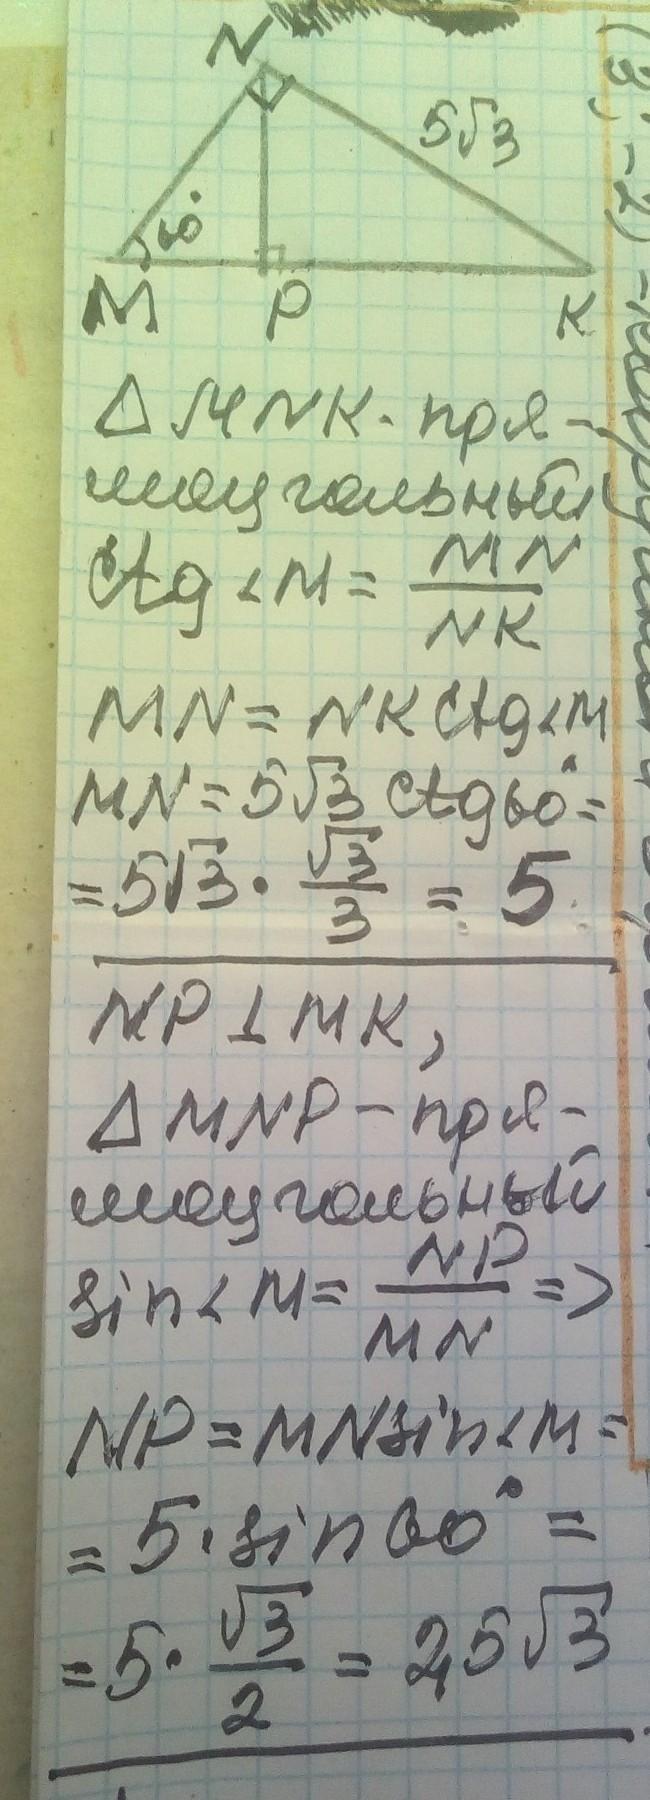 N
5√3
60°
M P K
△ MNK - пря-
моугольный
ctg < M = MN / NK
MN = NK ctg < M
MN = 5√3 ctg 60° =
= 5√3 · √3 / 3 = 5
NP ⊥ MK,
△ MNP - пря-
моугольный
sin < M = NP / MN =>
NP = MN sin < M =
= 5 · sin 60° =
= 5 · √3 / 2 = 2,5√3